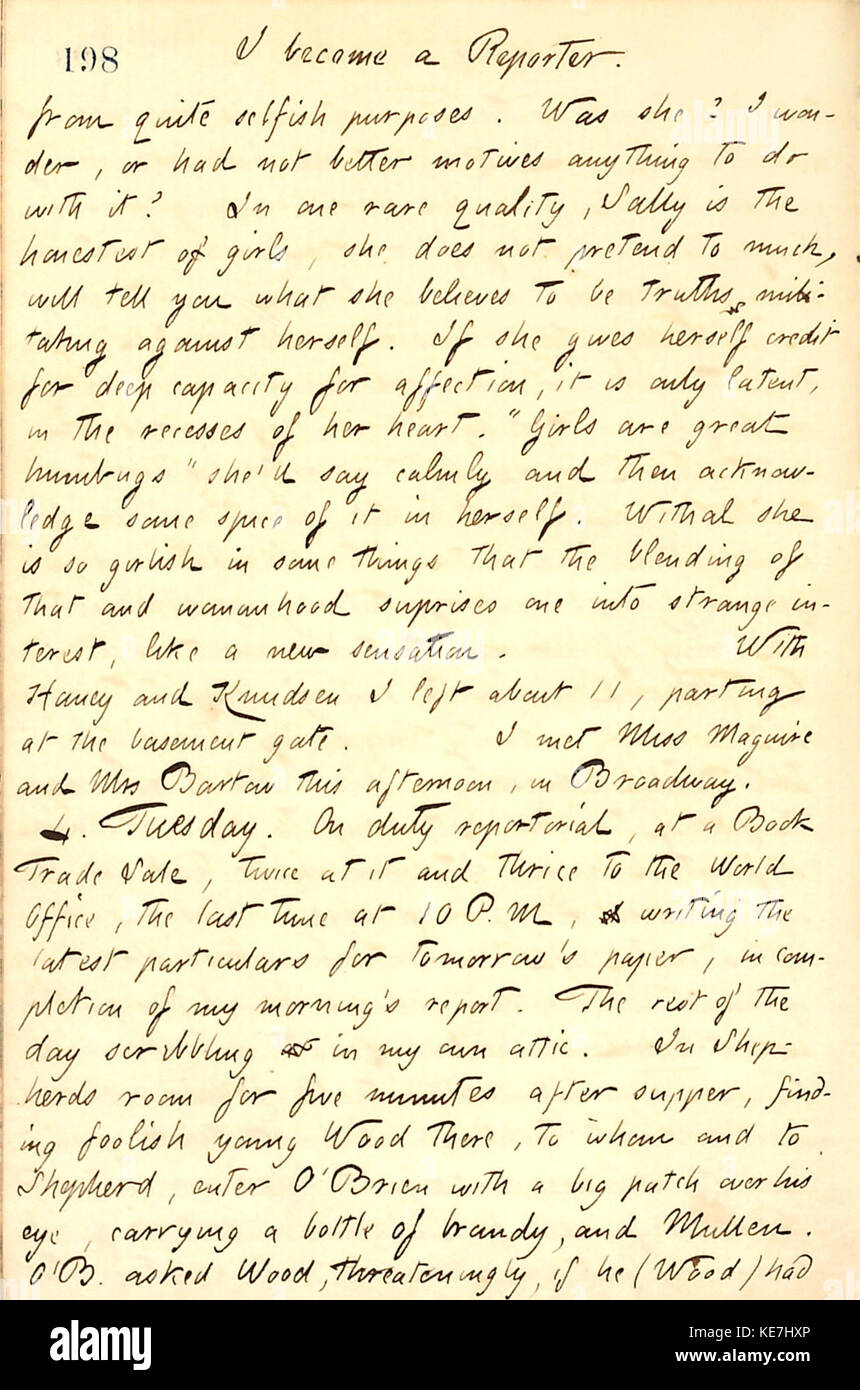 198
I become a Reporter.
from quite selfish purposes. Was she? I won-
der, or had not better motives anything to do
with it? In one rare quality, Sally is the
honestest of girls, she does not pretend to much,
will tell you what she believes to be truths mili-
tating against herself. If she gives herself credit
for deep capacity for affection, it is only latent,
in the recesses of her heart. "Girls are great
humbugs" she'd say calmly and then acknow-
ledge some spice of it in herself. Withal she
is so girlish in some things that the blending of
that and womanhood suprises one into strange in-
terest, like a new sensation. With
Haney and Knudsen I left about 11, parting
at the basement gate. I met Miss Maguire
and Mrs Bartow this afternoon, in Broadway.
4. Tuesday. On duty reportorial, at a Book
Trade Sale, twice at it and thrice to the World
Office, the last time at 10 P.M, writing the
latest particulars for tomorrow's paper, in com-
pletion of my morning's report. The rest of the
day scribbling in my own attic. In Shep-
herds room for five minutes after supper, find-
ing foolish young Wood there, to whom and to
Shepherd, enter O'Brien with a big patch over his
eye, carrying a bottle of brandy, and Mullen.
O'B. asked Wood, threateningly, if he (Wood) had
alamy
Image ID: KE7HXP
www.alamy.com